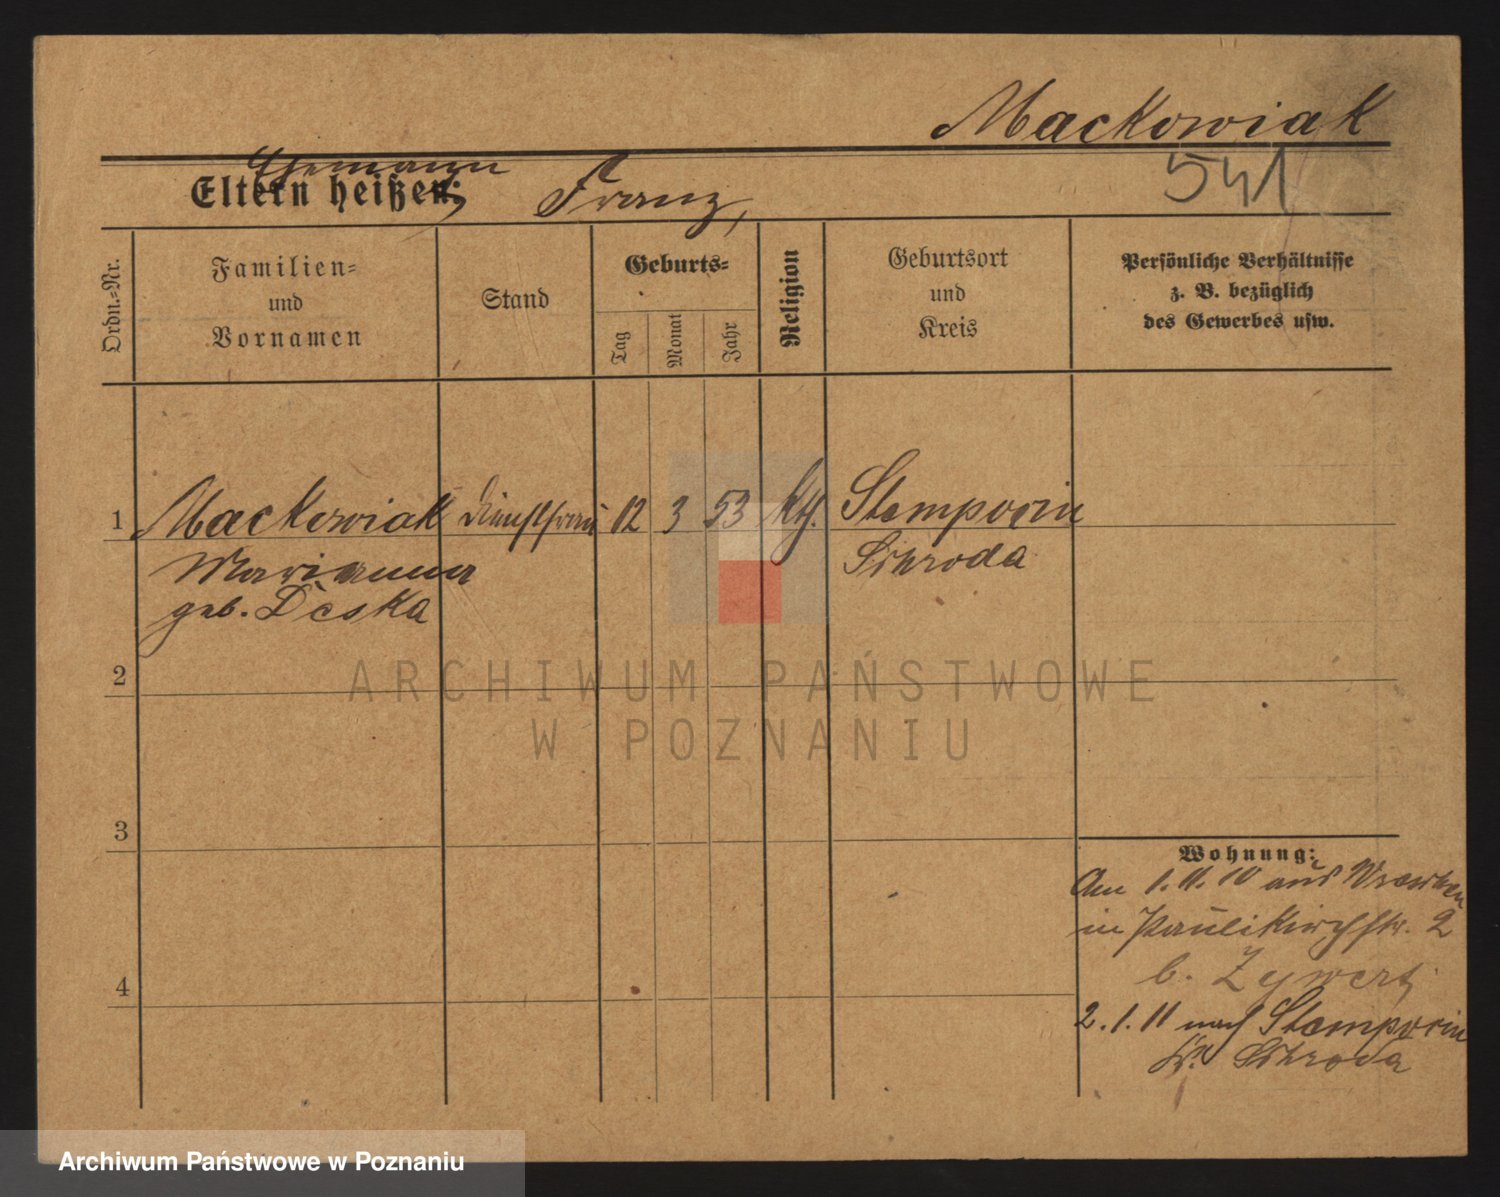 Mackowiak
541
Ehemann
Eltern heißen: Franz,
Ordn.-Nr.
Familien-
und
Vornamen
Stand
Geburts-
Tag
Monat
Jahr
Religion
Geburtsort
und
Kreis
Persönliche Verhältnisse
z. B. bezüglich
des Gewerbes usw.
1 Mackowiak Dienstfrau 12 3 53 kth. Stempocin
Schroda
Marianna
geb. Deska
2
3
4
Wohnung:
Am 1.11.10 aus Wreschen
in Paulikirchstr. 2
b. Zywert
2.1.11 nach Stempocin
Kr. Schroda
ARCHIWUM PAŃSTWOWE
W POZNANIU
Archiwum Państwowe w Poznaniu